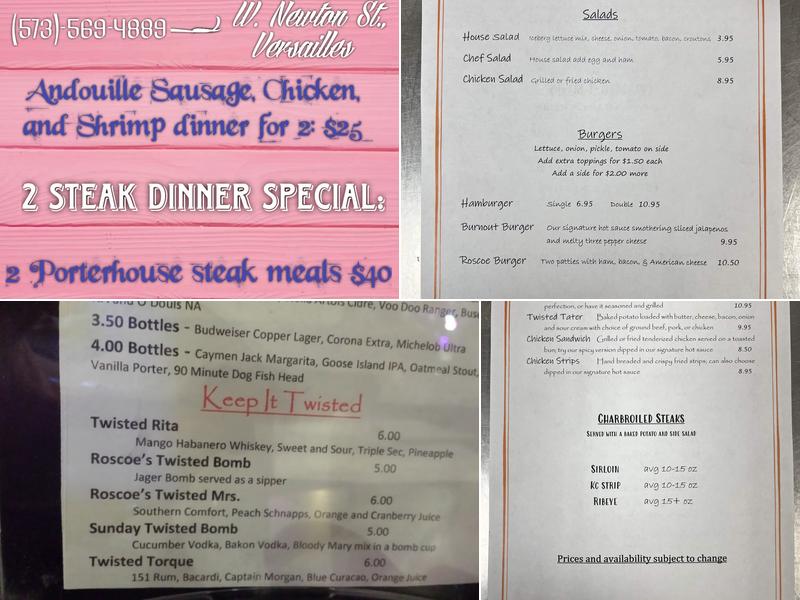 (573)-569-4889
W. Newton St.,
Versailles
Andouille Sausage, Chicken,
and Shrimp dinner for 2: $25
2 STEAK DINNER SPECIAL:
2 Porterhouse steak meals $40
Salads
House Salad Iceberg lettuce mix, cheese, onion, tomato, bacon, croutons 3.95
Chef Salad House salad add egg and ham 5.95
Chicken Salad Grilled or fried chicken 8.95
Burgers
Lettuce, onion, pickle, tomato on side
Add extra toppings for $1.50 each
Add a side for $2.00 more
Hamburger Single 6.95 Double 10.95
Burnout Burger Our signature hot sauce smothering sliced jalapenos
and melty three pepper cheese 9.95
Roscoe Burger Two patties with ham, bacon, & American cheese 10.50
O'Douls NA Voo Doo Ranger,
3.50 Bottles - Budweiser Copper Lager, Corona Extra, Michelob Ultra
4.00 Bottles - Caymen Jack Margarita, Goose Island IPA, Oatmeal Stout,
Vanilla Porter, 90 Minute Dog Fish Head
Keep It Twisted
Twisted Rita 6.00
Mango Habanero Whiskey, Sweet and Sour, Triple Sec, Pineapple
Roscoe's Twisted Bomb 5.00
Jager Bomb served as a sipper
Roscoe's Twisted Mrs. 6.00
Southern Comfort, Peach Schnapps, Orange and Cranberry Juice
Sunday Twisted Bomb 5.00
Cucumber Vodka, Bakon Vodka, Bloody Mary mix in a bomb cup
Twisted Torque 6.00
151 Rum, Bacardi, Captain Morgan, Blue Curacao, Orange Juice
perfection, or have it seasoned and grilled 10.95
Twisted Tater Baked potato loaded with butter, cheese, bacon, onion
and sour cream with choice of ground beef, pork, or chicken 9.95
Chicken Sandwich Grilled or fried tenderized chicken served on a toasted
bun; try our spicy version dipped in our signature hot sauce 8.50
Chicken Strips Hand breaded and crispy fried strips; can also choose
dipped in our signature hot sauce 8.95
Charbroiled Steaks
Served with a baked potato and side salad
Sirloin avg 10-15 oz
KC Strip avg 10-15 oz
Ribeye avg 15+ oz
Prices and availability subject to change